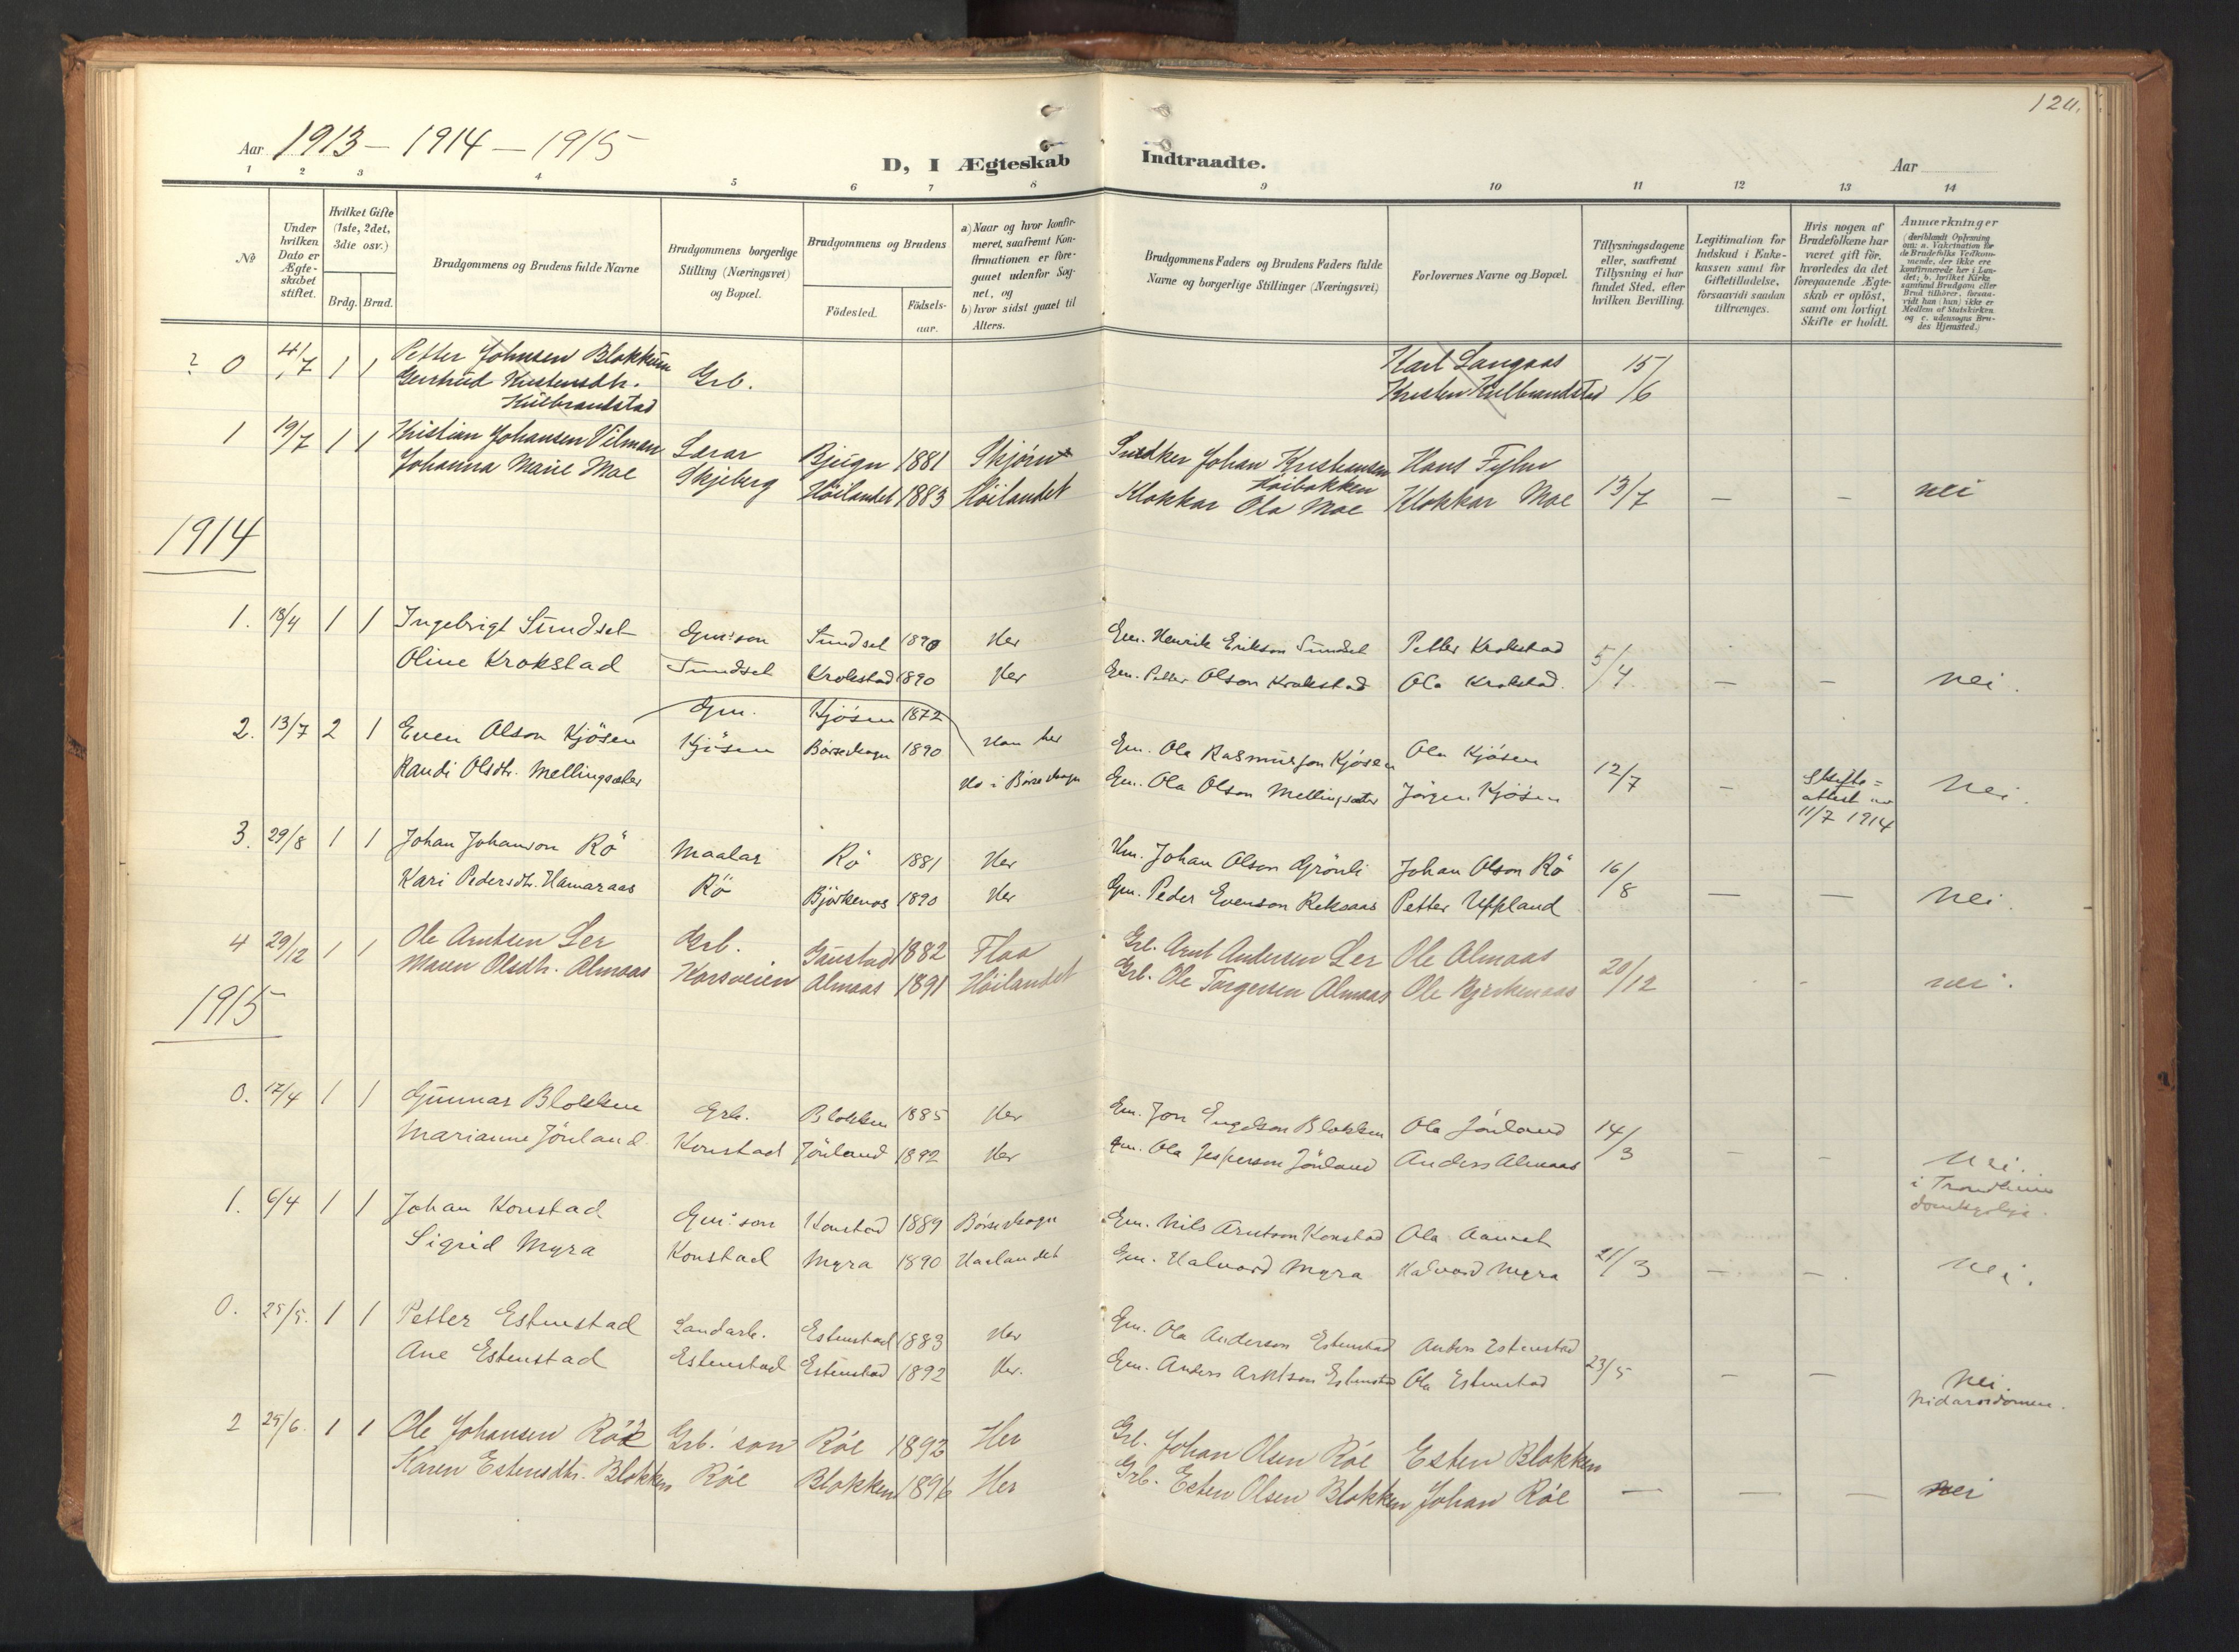 124.
Aar 1913 - 1914 - 1915
D, I Ægteskab Indtraadte.
Aar
1 2 3 4 5 6 7 8 9 10 11 12 13 14
No
Under hvilken Dato er Ægteskabet stiftet.
Hvilket Gifte (1ste, 2det, 3die osv.)
Brdg. Brud.
Brudgommens og Brudens fulde Navne
Brudgommens borgerlige Stilling (Næringsvei) og Bopæl.
Brudgommens og Brudens
Fødested.
Fødsels-aar.
a) Naar og hvor konfirmeret, saafremt Konfirmationen er foregaaet udenfor Sognet, og
b) hvor sidst gaaet til Alters.
Brudgommens Faders og Brudens Faders fulde Navne og borgerlige Stillinger (Næringsvei)
Forlovernes Navne og Bopæl.
Tillysningsdagene eller, saafremt Tillysning ei har fundet Sted, efter hvilken Bevilling.
Legitimation for Indskud i Enkekassen samt for Giftetilladelse, forsaavidt saadan tiltrænges.
Hvis nogen af Brudefolkene har været gift før, hvorledes da det foregaaende Ægteskab er opløst, samt om lovligt Skifte er holdt.
Anmærkninger
(deriblandt Oplysning om: a. Vakcination for de Brudefolks Vedkommende, der ikke ere konfirmerede her i Landet; b. hvilket Kirkesamfund Brudgom eller Brud tilhører, forsaavidt han (hun) ikke er Medlem af Statskirken og c. udensogns Brudes Hjemsted.)
? 0 4/7 1 1 Petter Johnsen Blokkum Grb. Karl Langaas 15/6
Gertrud Kristensdtr. Kulbrandstad Kristen Kulbrandstad
1 19/7 1 1 Kristian Johansen Vilman Lærar Bjugn 1881 Skjørn Snedker Johan Kristiansen Høibakken Hans Fylm
Johanna Marie Moe Skjeberg Høilandet 1883 Høilandet Klokkar Ola Moe Klokkar Moe 13/7 - - nei
1914
1. 18/4 1 1 Ingebrigt Sundset Gm:son Sundset 1890 Her Gm. Henrik Erikson Sundset Petter Krokstad 5/4
Oline Krokstad Sundset Krokstad 1890 Her Gm. Petter Olson Krokstad Ola Krokstad. - - nei.
2. 13/7 2 1 Even Olson Kjøsen Gm. Kjøsen 1872 Han her Gm. Ola Rasmusson Kjøsen Ola Kjøsen 12/7
Randi Olsdtr. Mellingsæter Kjøsen Børseskogn 1890 Ho i Børseskogn Gm. Ola Olson Mellingsæter Jørgen Kjøsen - Skifte=attest av 11/7 1914 Nei.
3. 29/8 1 1 Johan Johanson Rø Maalar Rø 1881 Her Hm. Johan Olson Grønli Johan Olson Rø 16/8
Kari Pedersdtr. Hamaraas Rø Bjørkenos 1890 Her Gm. Peder Evenson Reksaas Petter Uppland - - Nei.
4 29/12 1 1 Ole Arntsen Ler Grb. Gaustad 1882 Flaa Grb. Arnt Andersen Ler Ole Almaas 20/12
Maren Olsdtr. Almaas Korsveien Almaas 1891 Høilandet Grb. Ole Torgersen Almaas Ole Bjerkenaas - - nei.
1915
0. 17/4 1 1 Gunnar Blokken Grb. Blokken 1885 Her Gm. Jon Engelson Blokken Ola Jønland 14/3
Marianne Jønland. Konstad Jønland 1892 Her Gm. Ola Jesperson Jønland Anders Almaas - - Nei. i Trondheims domkyrkje.
1. 6/4 1 1 Johan Konstad Gm:son Konstad 1889 Børseskogn Gm. Nils Arntson Konstad Ola Aaunet 21/3
Sigrid Myra Konstad Myra 1890 Haalandet Gm. Halvard Myra Halvard Myra - - Nei.
0. 25/5. 1 1 Petter Estenstad Landarb. Estenstad 1883 Her Gm. Ola Anderson Estenstad Anders Estenstad 23/5
Ane Estenstad Estenstad Estenstad 1892 Her. Gm. Anders Arntson Estenstad Ola Estenstad - - Nei. Nidarosdomen.
2 25/6. 1 1 Ole Johansen Røe Grb.'son Røe 1893 Her Grb. Johan Olsen Røe Esten Blokken
Karen Estensdtr. Blokken Røe Blokken 1896 Her Grb. Esten Olsen Blokken Johan Røe - - - nei